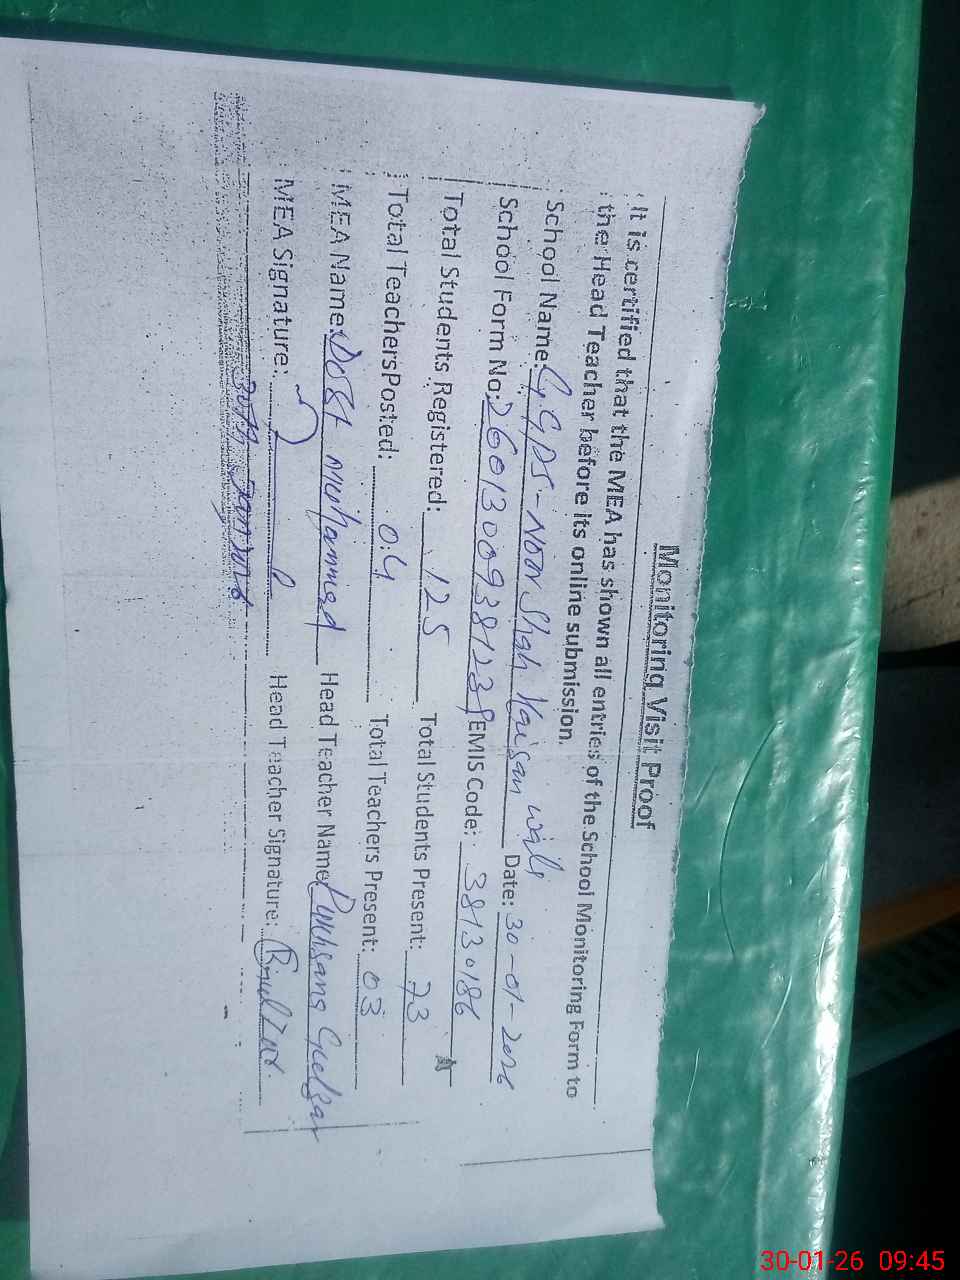 Monitoring Visit Proof
It is certified that the MEA has shown all entries of the School Monitoring Form to
the Head Teacher before its online submission.
School Name: GGPS-Noor Shah Date: 30-01-2026
School Form No: EMIS Code: 38130186
Total Students Registered: 125 Total Students Present: 73
Total TeachersPosted: 04 Total Teachers Present: 03
MEA Name: Dost Muhammad Head Teacher Name
MEA Signature: Head Teacher Signature:
30-01-26 09:45